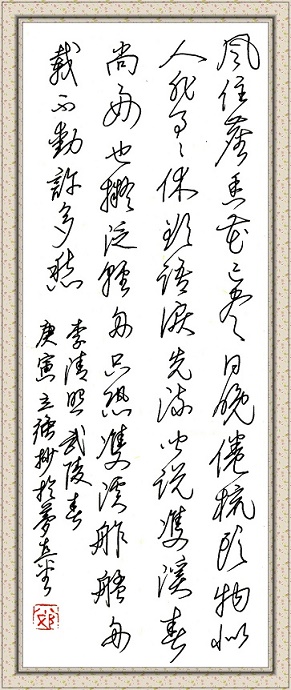 風住塵香花已盡日晚倦梳頭物似
人非事々休欲語淚先流聞說雙溪春
尚好也擬泛輕舟只恐雙溪舴艋舟
載不動許多愁
李清照武陵春
庚寅立強抄於夢